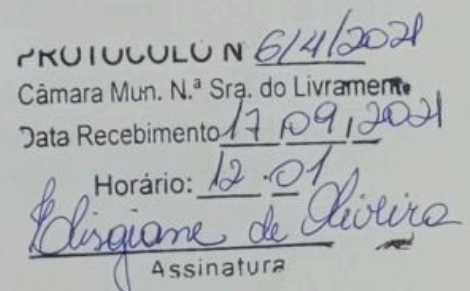 PROTOCOLO N 614/2021
Câmara Mun. N.ª Sra. do Livramento
Data Recebimento 17/09/2021
Horário: 12:01
Elisgiane de Oliveira
Assinatura